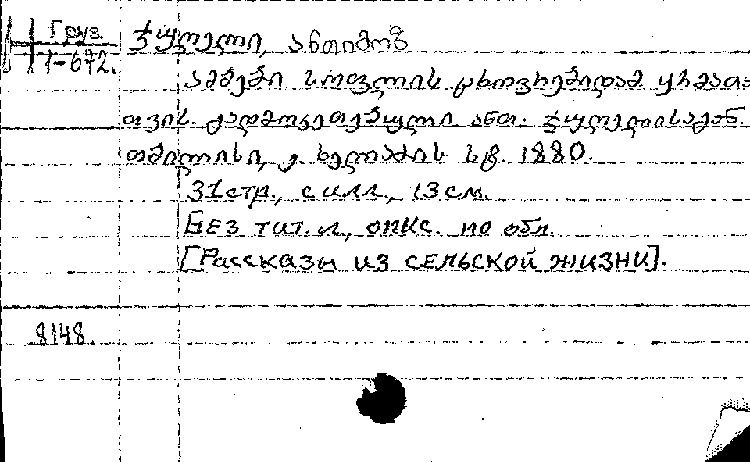 Груз.
1-672.
ჭყლელი, ანთიმოზ
ამბები სოფლის ცხოვრებიდამ ყრმათა
თვის. გადმოკეთებული ანთ. ჭყლელისაგან.
თბილისი, ე. ხელაძის სტ. 1880.
31 стр., с илл., 13 см.
Без тит. л., опис. по обл.
[Рассказы из сельской жизни].
8148.